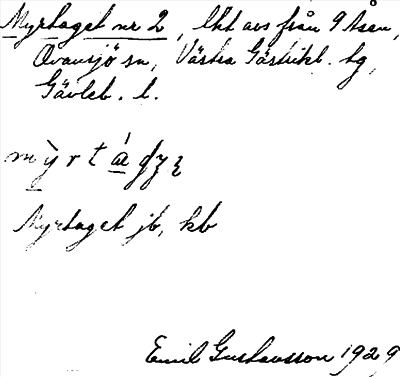 Myrtaget nr 2, lht avs från 9 Åsen,
Ovansjö sn, Västra Gästrikl. tg,
Gävleb. l.
Myrtaget jb, kb
Emil Gustavsson 1929